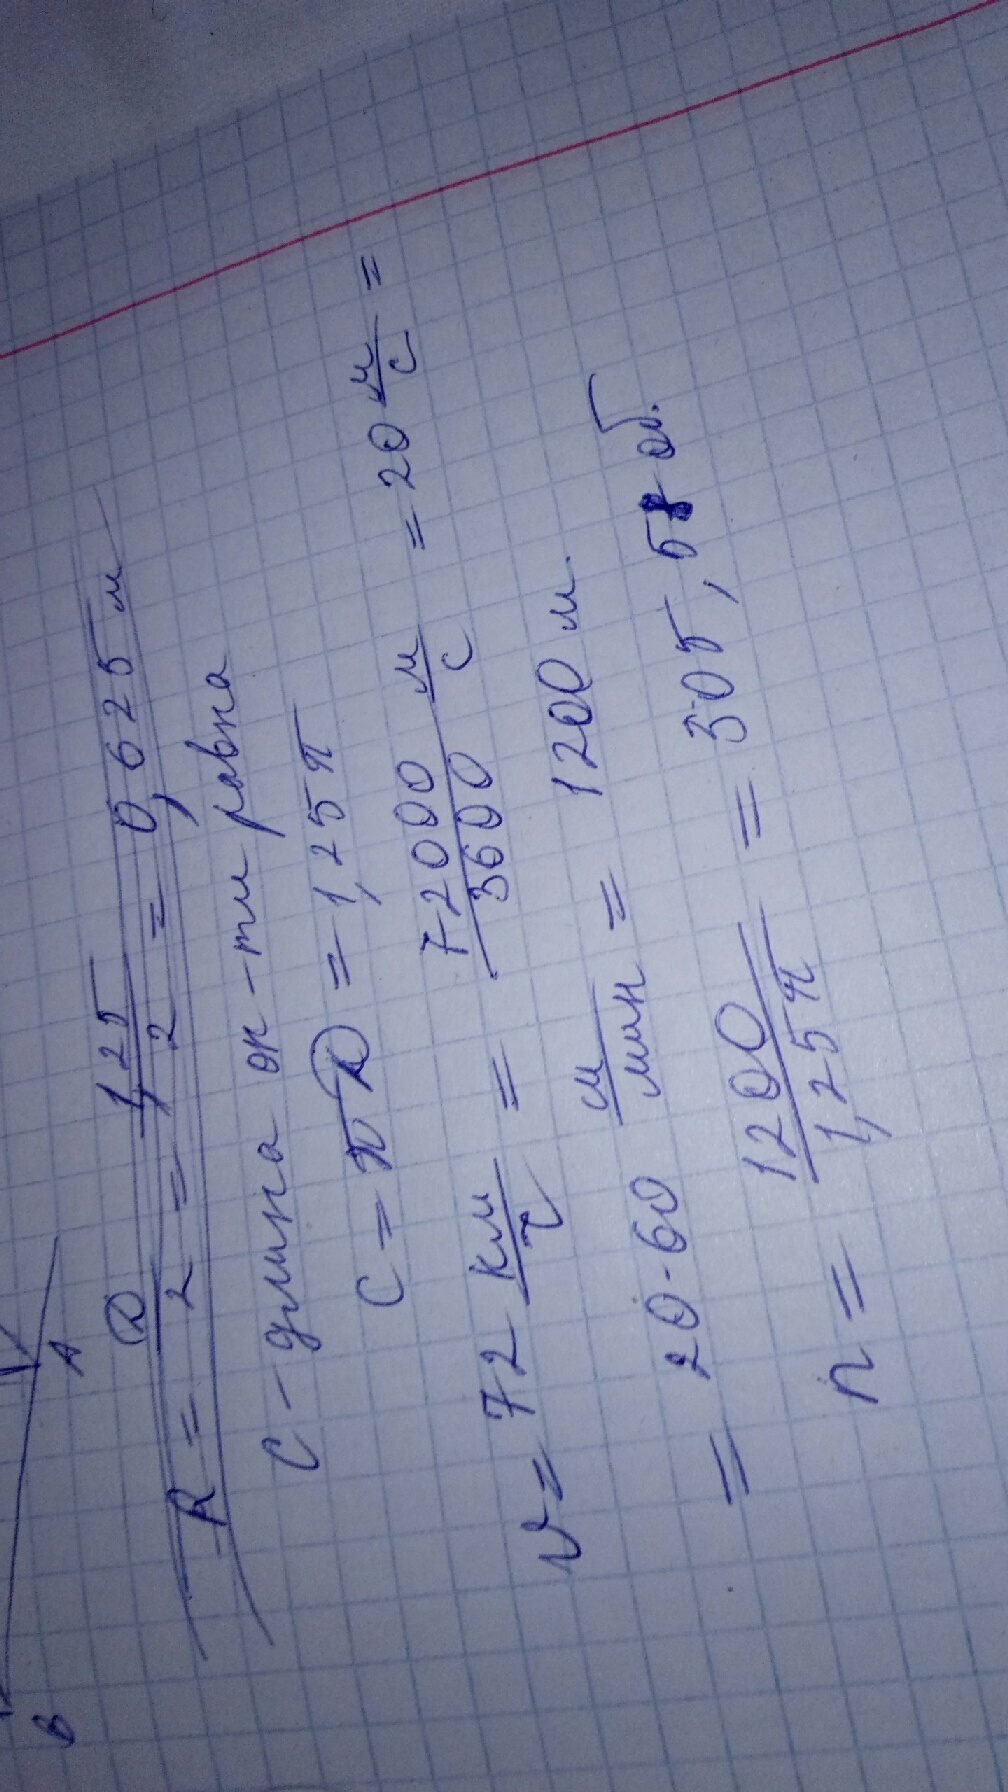 B A
R = D/2 = 1,25/2 = 0,625 м
C - длина ок-ти равна
C = πD = 1,25π
v = 72 км/ч = 72000/3600 м/с = 20 м/с =
= 20·60 м/мин = 1200 м.
n = 1200/1,25π = 305,58 об.